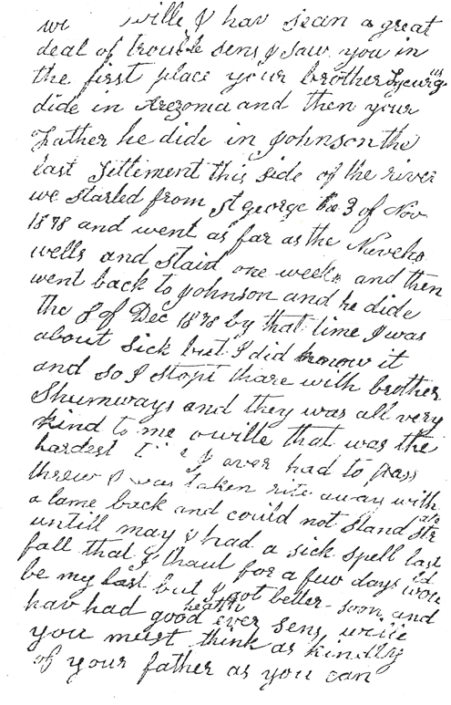 we   wille I hav sean a great
deal of trouble sens I saw you in
the first place your brother Lycurgus
dide in Arezoma and then your
Father he dide in Johnson the
last Sittlement this side of the river
we started from St george the 3 of Nov
1878 and went as far as the Naveho
wells and staid one week and then
went back to Johnson and he dide
the 8 of Dec 1878 by that time I was
about sick but I did know it
and so I stopt thare with brother
Shumways and they was all very
kind to me owille that was the
hardest I ever had to pass
threw I was taken rite away with
a lame back and could not stand
untill may I had a sick spell last
fall that I thaut for a few days would
be my last but I got better soon and
hav had good heath ever sens
you must think as kindly
of your father as you can